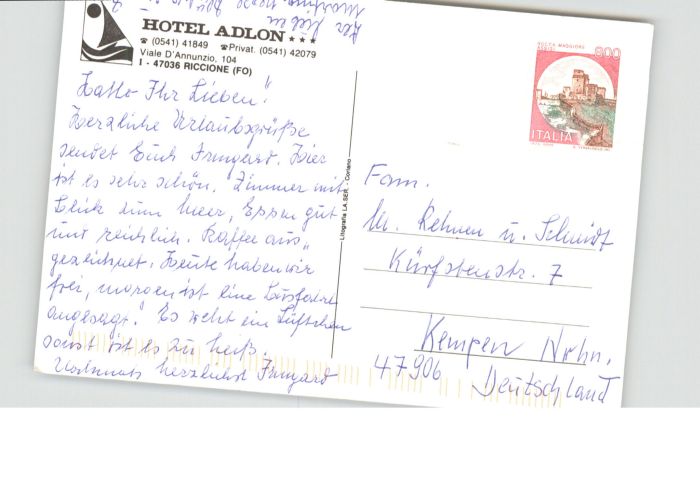 HOTEL ADLON ★★★
☎ (0541) 41849 ☎Privat. (0541) 42079
Viale D'Annunzio, 104
I - 47036 RICCIONE (FO)
Hallo Ihr Lieben!
Herzliche Urlaubsgrüße
sendet Euch Irmgard. Hier
ist es sehr schön. Zimmer mit
Blick zum Meer, Essen gut
und reichlich. Kaffee aus„
gezeichnet. Heute haben wir
frei, morgen ist eine Busfahrt
angesagt. Es weht ein Lüftchen
sonst ist es zu heiß.
Nochmals herzlichst Irmgard
Litografia LA.SER. - Coriano
ROCCA MAGGIORE
ASSISI
600
ITALIA
Fam.
M. Rehmen u. Schmidt
Kürfstenstr. 7
Kempen Nrhn.
47906
Deutschland